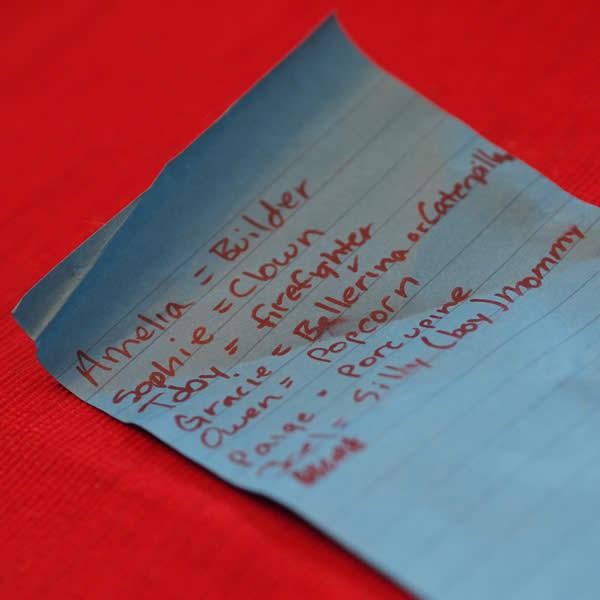 Amelia = Builder
Sophie = Clown
Toby = firefighter
Gracie = Ballerina or Caterpillar
Owen = Popcorn
Paige = Porcupine
= Silly (boy) Mommy